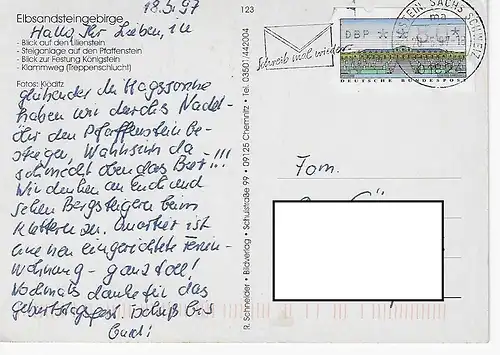 18.5.97
Elbsandsteingebirge
Hallo, Ihr Lieben, in
- Blick auf den Lilienstein
- Steiganlage auf den Pfaffenstein
- Blick zur Festung Königstein
- Klammweg (Treppenschlucht)
Fotos: Kloditz
glühender Mittagssonne
haben wir durchs Nadel-
öhr den Pfaffenstein be-
stiegen, Wahnsinn da
schmeckt oben das Bier!!!
Wir denken an Euch und
sehen Bergsteigern beim
Klettern zu. Quartier ist
eine neu eingerichtete Ferien-
wohnung - ganz toll!
Nochmals danke für das
Geburtstagsfest tschüß bis
bald!
123
R. Schneider • Bildverlag • Schulstraße 99 • 09125 Chemnitz • Tel. 03601/442004
Schreib mal wieder
STEIN, SÄCHS SCHWEIZ
DBP
DEUTSCHE BUNDESPOST
Fam.